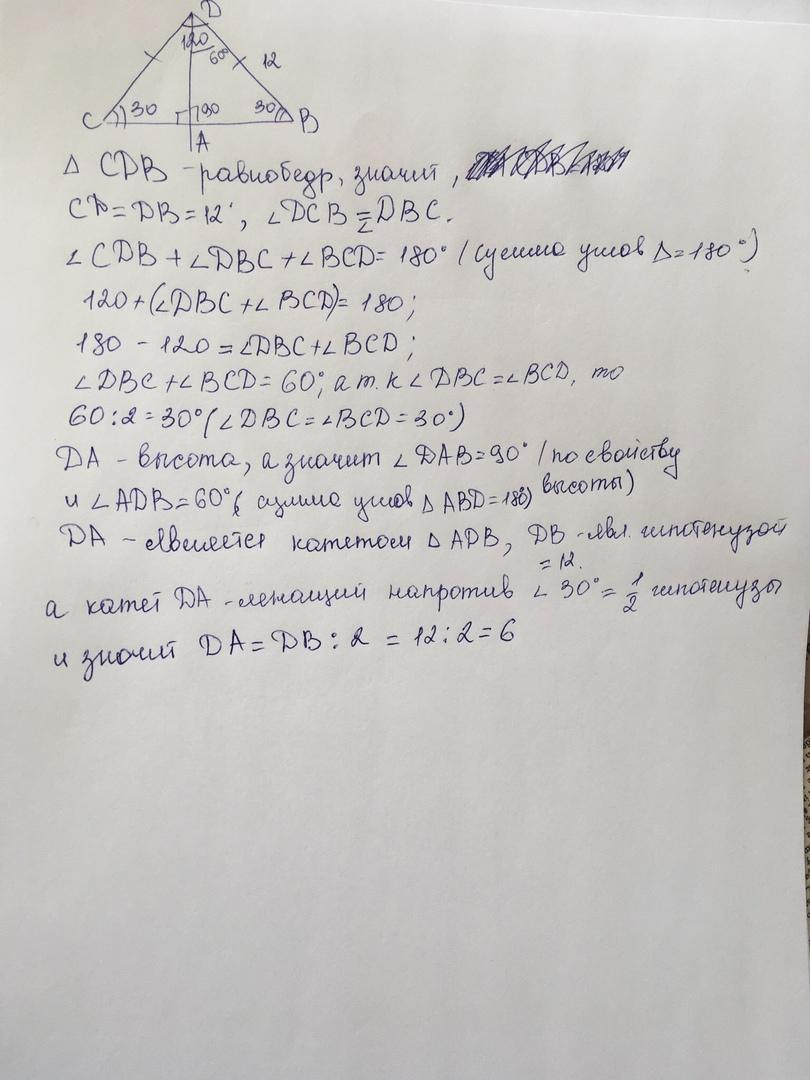 D
120
60°
12
C 30 90 30 B
A
Δ CDB - равнобедр, значит,
CD = DB = 12, ∠DCB = ∠DBC.
∠CDB + ∠DBC + ∠BCD = 180° (сумма углов Δ = 180°)
120 + (∠DBC + ∠BCD) = 180;
180 - 120 = ∠DBC + ∠BCD;
∠DBC + ∠BCD = 60°, а т.к ∠DBC = ∠BCD, то
60 : 2 = 30° (∠DBC = ∠BCD = 30°)
DA - высота, а значит ∠DAB = 90° (по свойству
высоты)
и ∠ADB = 60° (сумма углов Δ ABD = 180)
DA - является катетом Δ ADB, DB - явл. гипотенузой
= 12.
а катет DA - лежащий напротив ∠ 30° = 1/2 гипотенузы
и значит DA = DB : 2 = 12 : 2 = 6